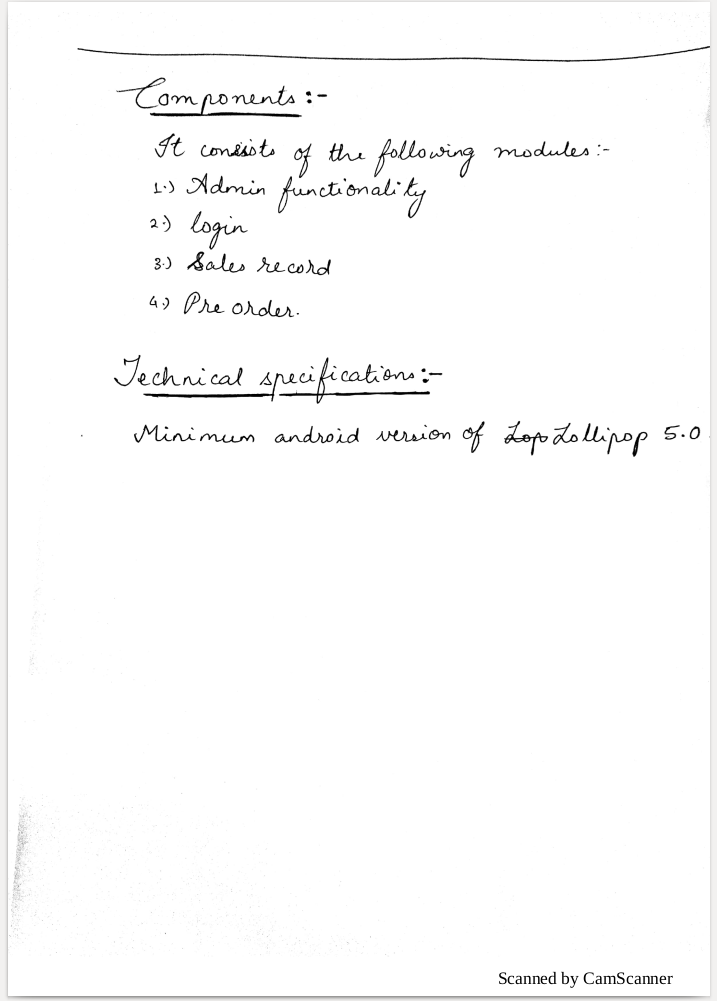 Components :-
It consists of the following modules :-
1.) Admin functionality
2.) login
3.) Sales record
4.) Pre order.
Technical specifications :-
Minimum android version of Lop Lollipop 5.0
Scanned by CamScanner